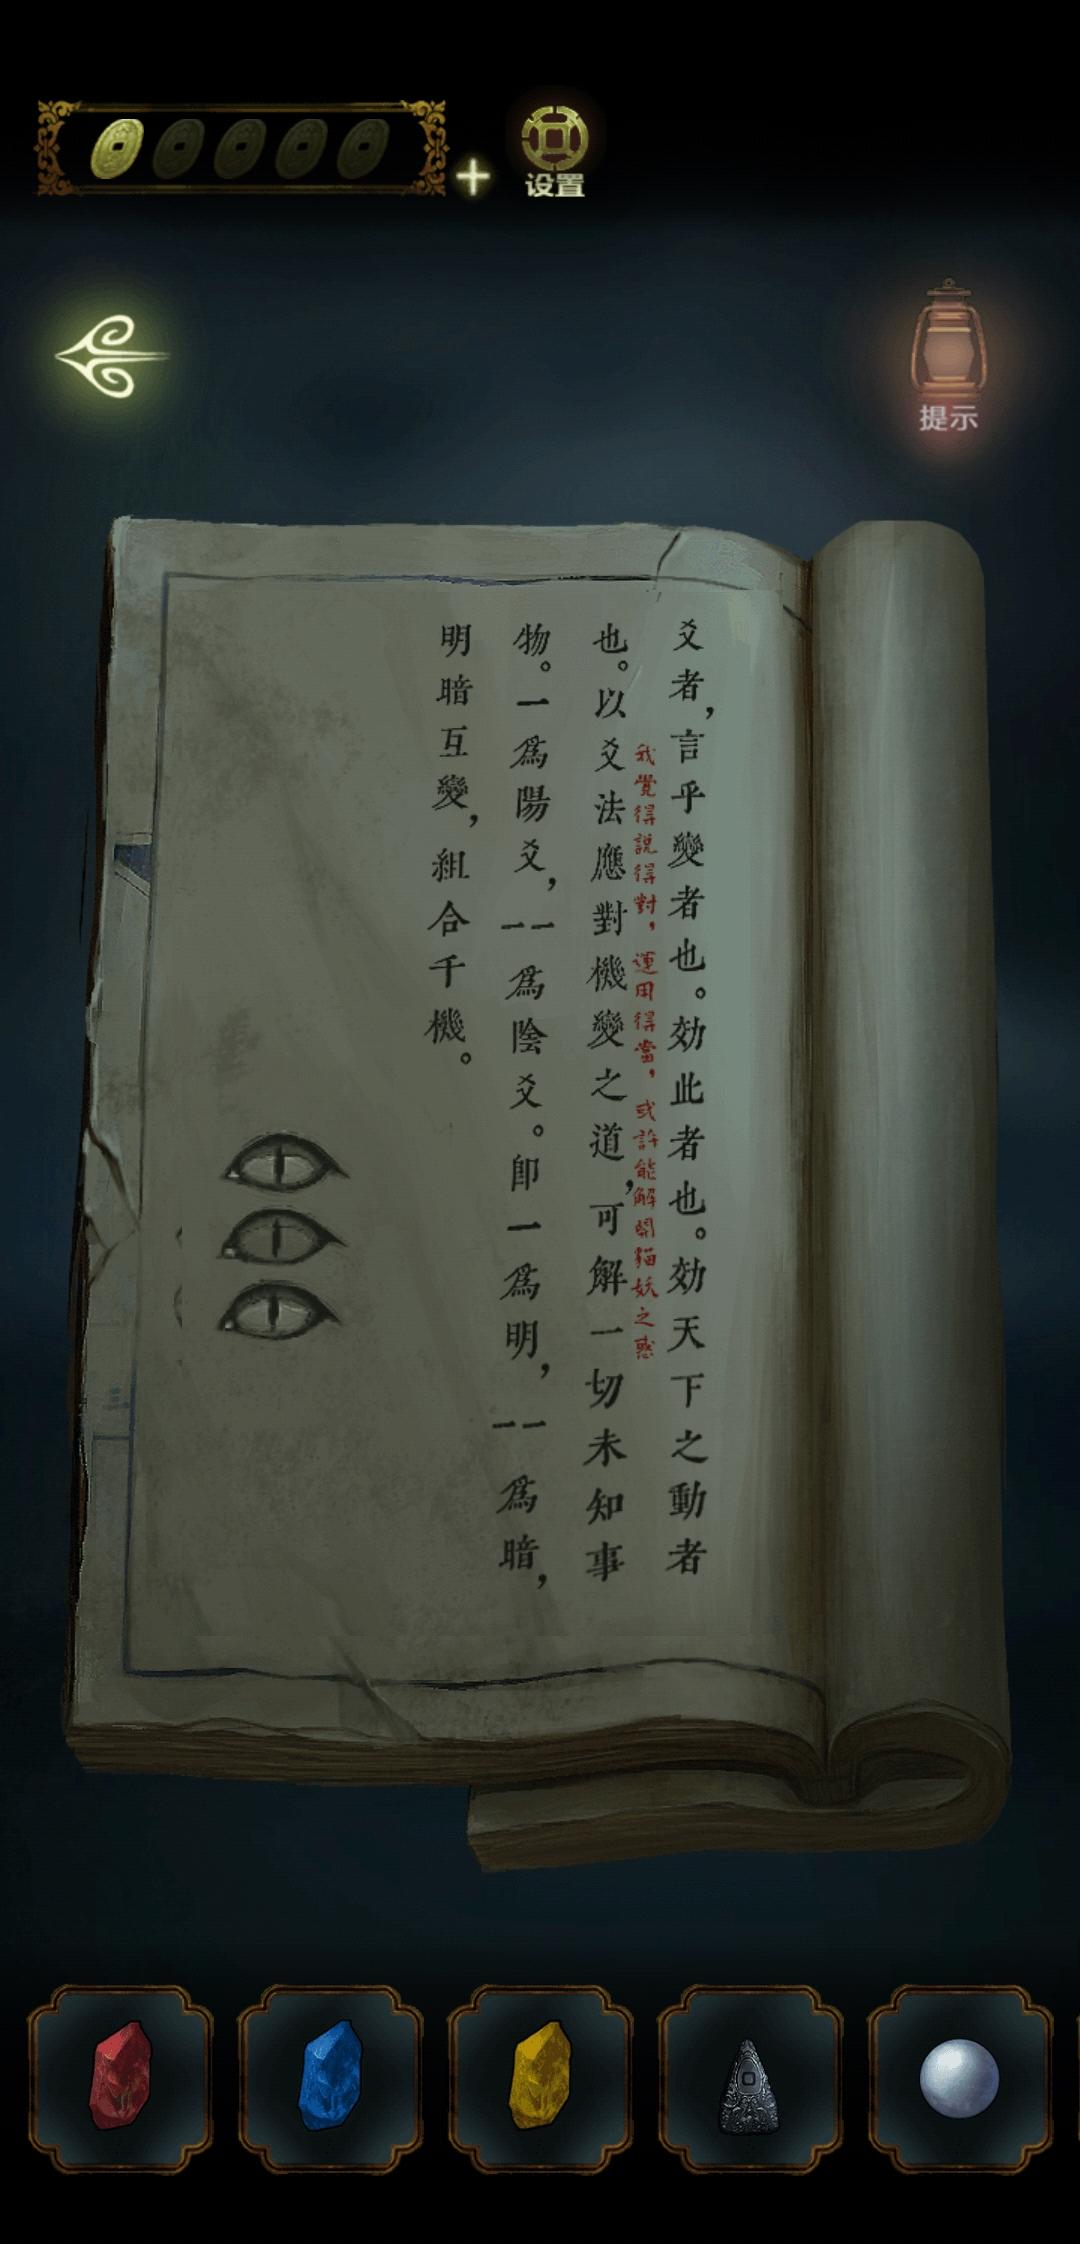 设置
提示
爻者，言乎變者也。効此者也。効天下之動者
我覺得説得對，運用得當，或許能解開貓妖之惑
也。以爻法應對機變之道，可解一切未知事
物。一爲陽爻，--爲陰爻。卽一爲明，--爲暗，
明暗互變，組合千機。